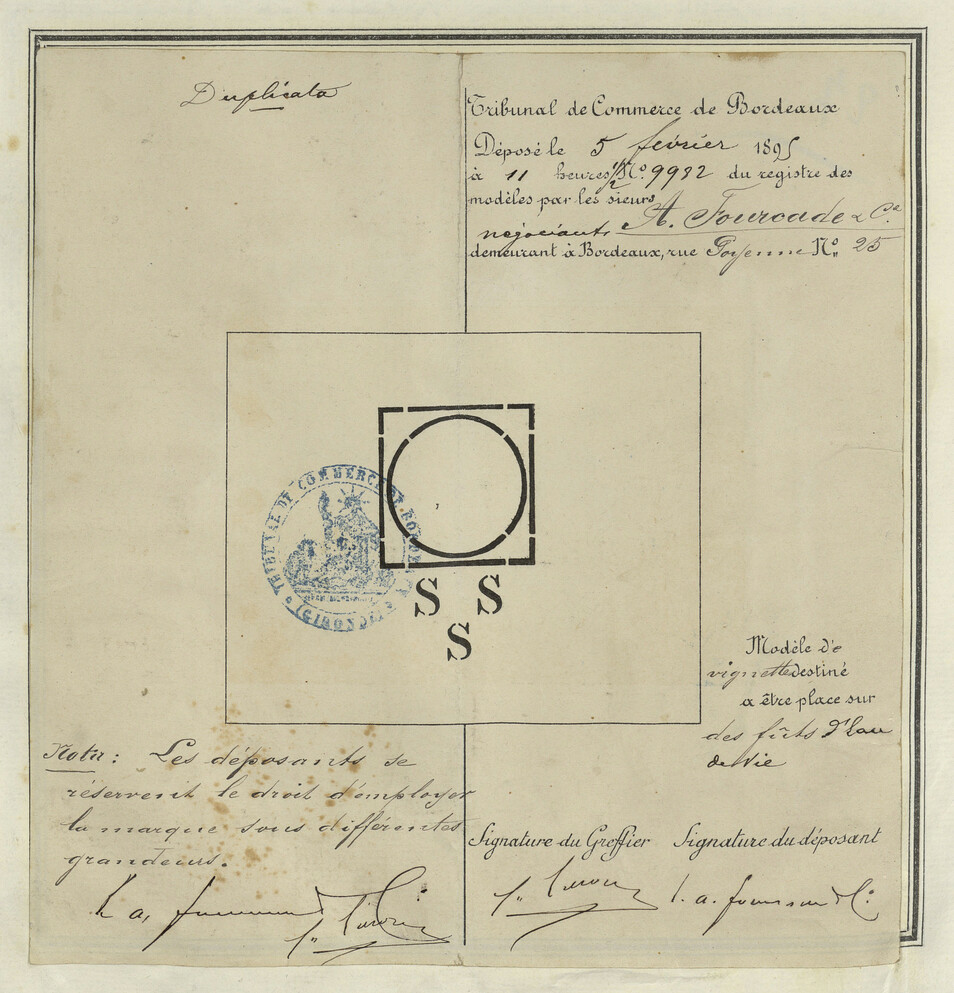 Duplicata
Tribunal de Commerce de Bordeaux
Déposé le 5 février 1895
à 11 heures 1/2 No. 9982 du registre des
modèles par les sieurs
négociants A. Fourcade & Cie
demeurant à Bordeaux, rue No. 25
TRIBUNAL DE COMMERCE DE BORDEAUX
(GIRONDE)
S S
S
Modèle de
vignette destiné
a être place sur
des fûts d'Eau
de Vie
Nota: Les déposants se
réservent le droit d'employer
la marque sous différentes
grandeurs.
Signature du Greffier Signature du déposant